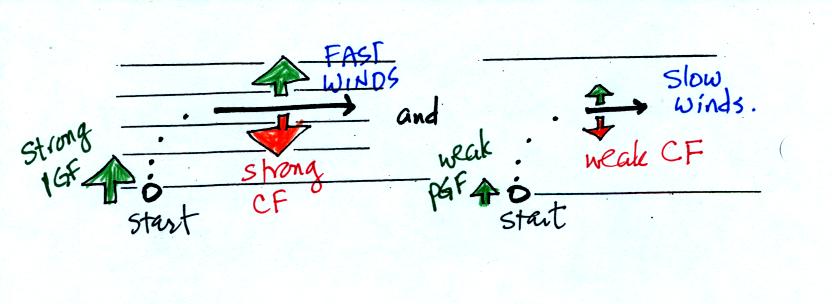 FAST
WINDS
Strong
PGF
strong
CF
start
and
Slow
winds.
weak
PGF
weak CF
start